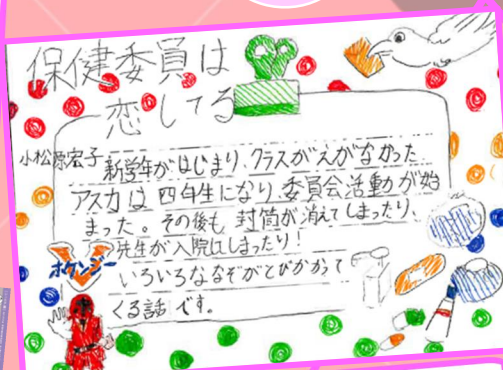 保健委員は
恋してる
小松原宏子
新学年がはじまり、クラスがえがなかった
アスカは四年生になり、委員会活動が始
まった。その後も、封筒が消えてしまったり、
先生が入院しまったり！
いろいろななぞがとびかかって
くる話です。
ホケンジー